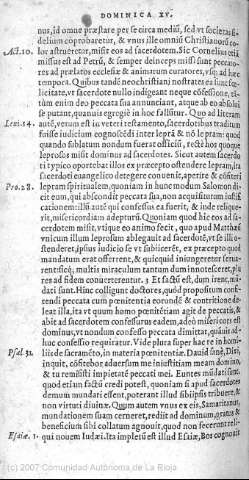 DOMINICA XV.
nus, id omne præstare per se circa medium, sed vt societas fi-
delium coprobaretur, & vnus ille omnium Christianorum co-
Act. 10. lor astrueretur, misit eos ad sacerdotem. Sic Cornelius etiã
missus est ad Petrũ, & semper deinceps missi sunt peccato-
res ad prælatos ecclesiæ & animarum curatores, vsq; ad hæc
tempora. Quibus tandẽ neochristiani nostra ea sunt
licitate, vt sacerdote nullo indigeat neque cõfessione,
tũm enim deo peccata sua annunciant, atque ab eo absolui
se putant, quanuis egregie in hoc fallitur. Quo ad literam
Leui. 14. autẽ, verum est in veteri testamento, sacerdotibus traditum
fuisse iudicium cognoscẽdi inter leprã & nõ lepram: quod
quando sublatum nondum fuerat officiũ, recte hos quoque
leprosos misit dominus ad sacerdotes. Sicut autem sacerdo
ti typico oportebat illos ex præcepto ostendere lepram, ita
sacerdoti euangelico detegere conuenit, aperire & cõfiteri
Pro. 28. lepram spiritualem, quoniam in hunc modum Salomon di-
cit eum, qui abscondit peccata sua, non acquisiturum iustifi
cationem: illũ autẽ qui confessus ea fuerit, & inde relique-
rit, misericordiam adepturũ. Quoniam quod hic eos ad sa-
cerdotem misit, vtique eo animo fecit, quo apud Matthæũ
vnicum illum leprosum ablegauit ad sacerdotẽ, vt se illi o-
stenderet, ipsius iudicio se vt subiiceret, ex præcepto quod
mandatum erat offerrent, & quicquid iniungeretur
rent: sicq; multis miraculum tantum dum innotesceret, plu
res ad fidem conuerterentur. Et factũ est, dum irent, mũ-
dati sunt. Hinc colligunt doctores, quòd propositum confi-
tendi peccata cum pœnitentia eorundẽ & contritione de-
leat illa, ita vt quum homo pœnitẽtiam agit de peccatis, &
abit ad sacerdotem confessurus eadem, adeò miseri
dominus, vt nondum confesso peccata dimittat, quãuis ad-
huc confessio requiratur. Vide plura super hac re in homi-
Psal. 31. liis de sacramẽto, in materia pœnitentiæ. Dauid sanè, Dixi,
inquit, cõfitebor aduersum me iniustitiam meam domino,
& tu remisisti impietatẽ peccati mei. Euntes mũdati sunt,
quod etiam factũ credi potest, quoniam si apud sacerdotes
demum mundati essent, poterant illud sibiipsis tribuere, &
non virtuti diuinæ. Quum autem vnus ex eis, Samaritanus,
mundationem suam cerneret, redit ad dominum, gratus &
beneficium sibi collatum agnouit, quod non fecerunt reli-
Esaiæ. 1. qui nouem Iudæi. Ita impletũ est illud Esaiæ, Bos cognouit
(c) 2007 Comunidad Autónoma de La Rioja